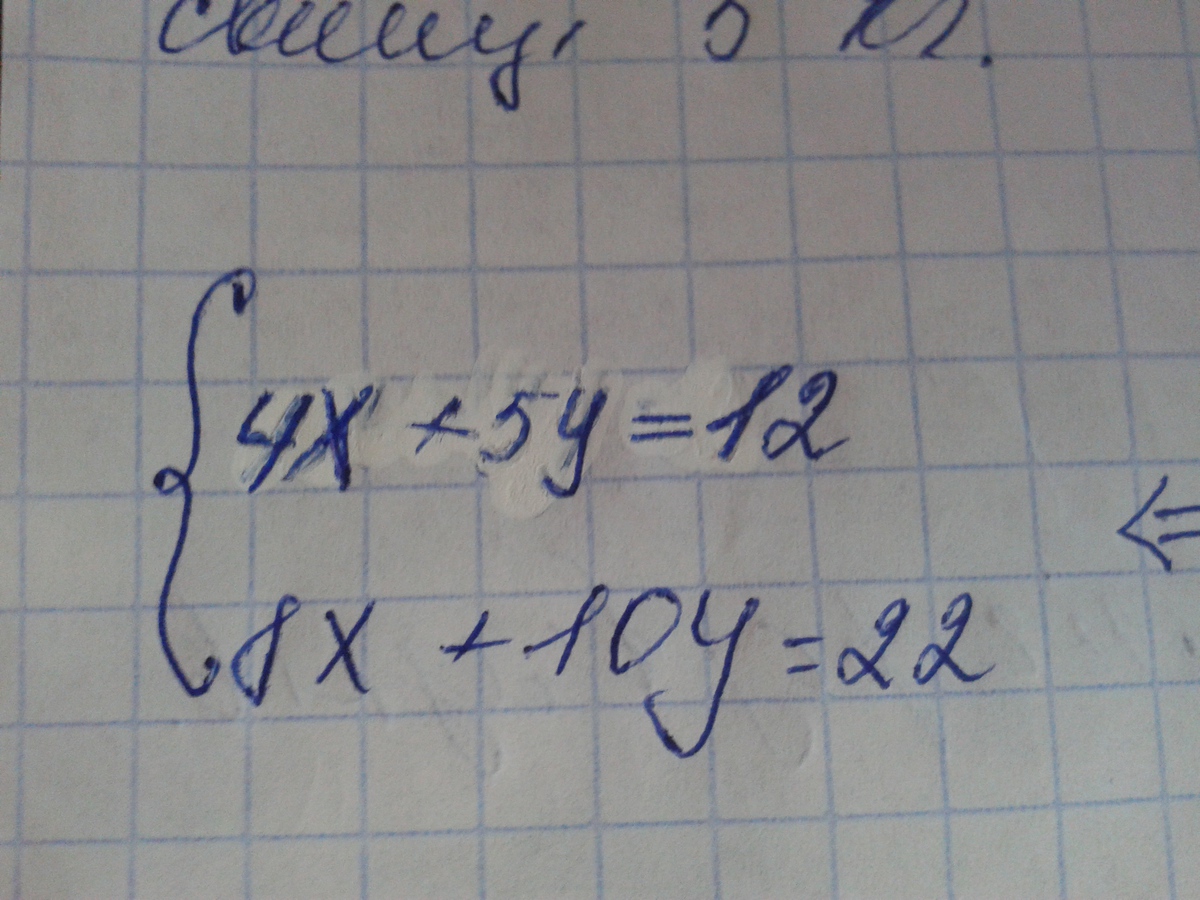 4x + 5y = 12
8x + 10y = 22
⇐